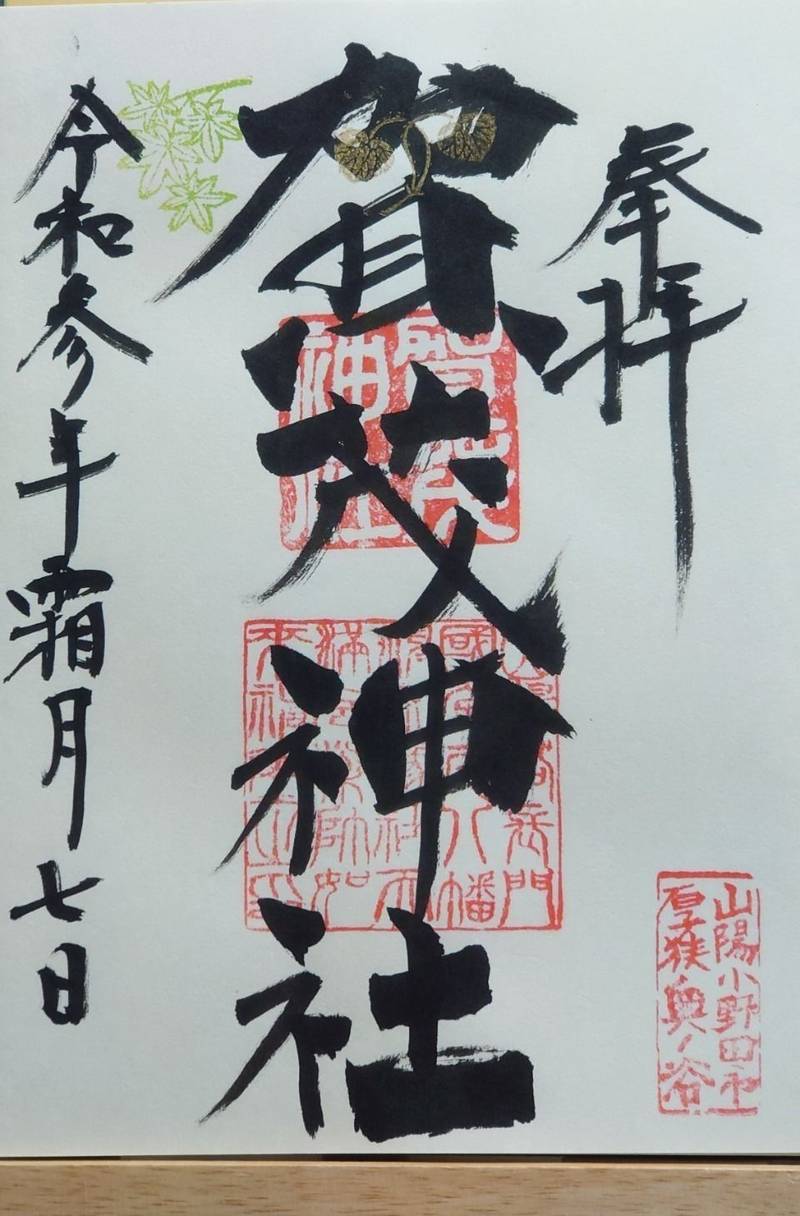 奉拝
山陽小野田市
厚狭奥ノ谷
賀茂神社
賀茂
神社
令和参年霜月七日